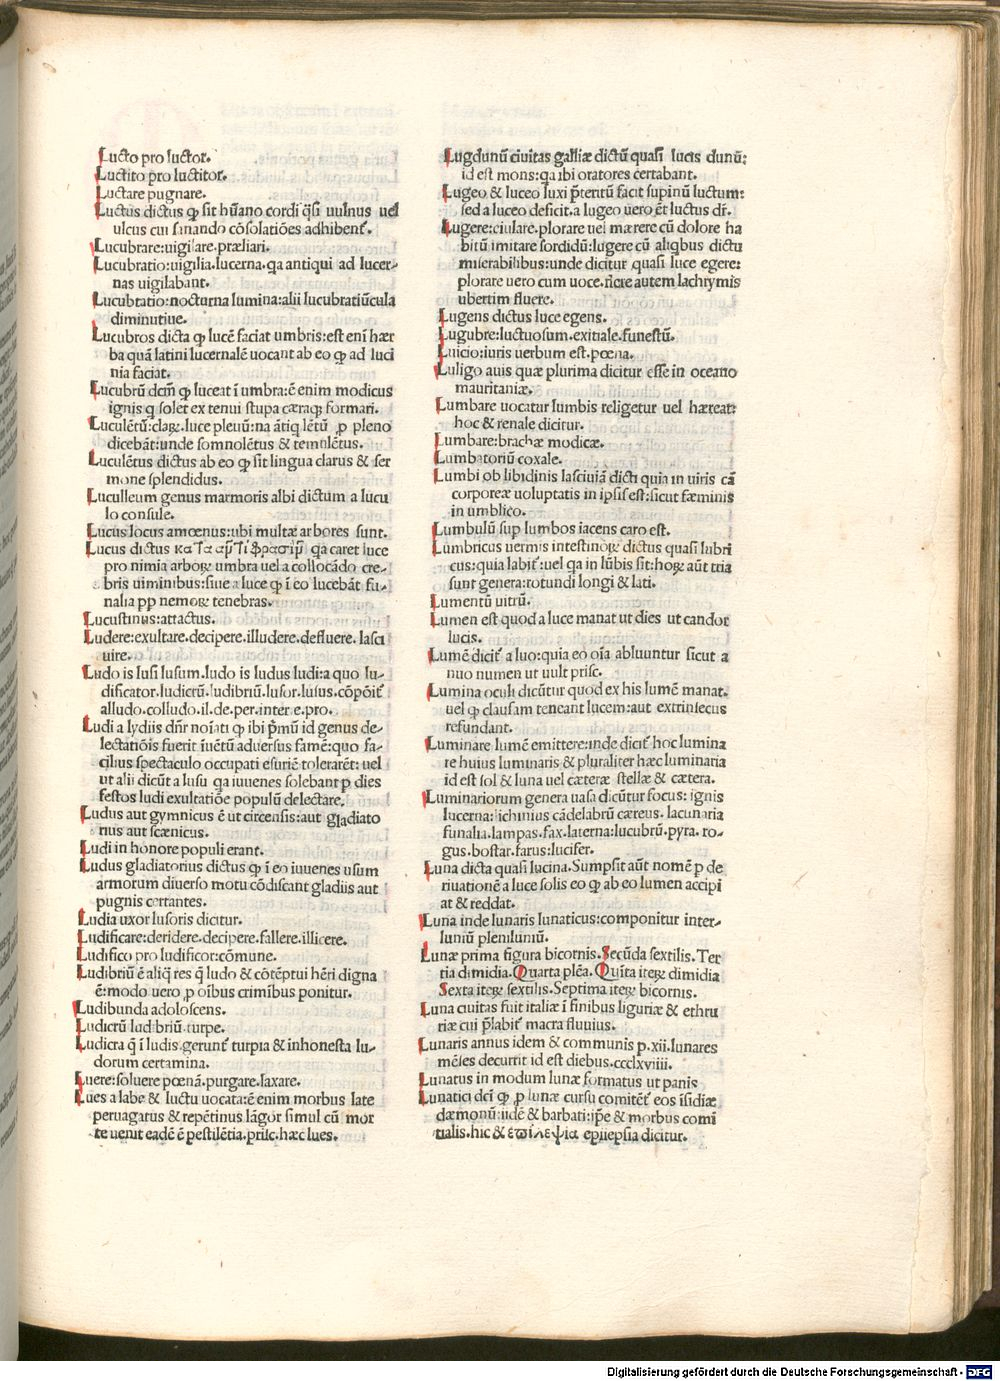 Lucto pro luctor.
Luctito pro luctitor.
Luctare pugnare.
Luctus dictus ꝙ sit hũano cordi q̃si uulnus uel
ulcus cui sinando cõsolatiões adhibent᷑.
Lucubrare:uigilare.præliari.
Lucubratio:uigilia.lucerna.qa antiqui ad lucer-
nas uigilabant.
Lucubtatio:nocturna lumina:alii lucubratiũcula
diminutiue.
Lucubros dicta ꝙ lucẽ faciat umbris:est enĩ hær
ba quã latini lucernalẽ uocant ab eo ꝙ ad luci
nia faciat.
Lucubrũ dcm̃ ꝙ luceat ĩ umbra:ẽ enim modicus
ignis q solet ex tenui stupa cæraqꝫ formari.
Luculẽtũ:claꝝ.luce plenũ:na ãtiq lẽtũ ꝓ pleno
dicebãt:unde somnolẽtus & temulẽtus.
Luculẽtus dictus ab eo ꝙ sit lingua clarus & ser
mone splendidus.
Luculleum genus marmoris albi dictum a lucu
lo consule.
Lucus locus amœnus:ubi multæ arbores sunt.
Lucus dictus κατα αρ̃τιφρασιρ̃ qa caret luce
pro nimia arboꝝ umbra uel a collocãdo cre-
bris uiminibus:siue a luce ꝙ ĩ eo lucebãt fu-
nalia pp nemoꝝ tenebras.
Lucustinus:attactus.
Ludere:exultare.decipere.illudere.defluere.lasci
uire.
Ludo is lusi lusum.ludo is ludus ludi:a quo lu-
dificator.ludicrũ.ludibriũ.lusor.lusus.cõpõit᷑
alludo.colludo.il.de.per.inter e.pro.
Ludi a lydiis dñr noĩati ꝙ ibi p̃mũ id genus de-
lectatiõis fuerit ĩuẽtũ aduersus famẽ:quo fa-
cilius spectaculo occupati esuriẽ tolerarẽt: uel
ut alii dicũt a lusu qa iuuenes solebant p dies
festos ludi exultatiõe populũ delectare.
Ludus aut gymnicus ẽ ut circensis:aut gladiato
rius aut scænicus.
Ludi in honore populi erant.
Ludus gladiatorius dictus ꝙ ĩ eo iuuenes usum
armorum diuerso motu cõdiscant gladiis aut
pugnis certantes.
Ludia uxor lusoris dicitur.
Ludificare:deridere.decipere.fallere.illicere.
Ludifico pro ludificor:cõmune.
Ludibriũ ẽ aliq̃ res q̃ ludo & cõtẽptui hẽri digna
ẽ:modo uero ꝓ oĩbus crimĩbus ponitur.
Ludibunda adoloscens.
Ludicrũ ludibriũ.turpe.
Ludicra q̃ ĩ ludis gerunt᷑ turpia & inhonesta lu-
dorum certamina.
Luere:soluere pœnã.purgare.laxare.
Lues a labe & luctu uocata:ẽ enim morbus late
peruagatus & repẽtinus lãgor simul cũ mor
te uenit eadẽ ẽ pestilẽtia.prisc.hæc lues.
Lugdunũ ciuitas galliæ dictũ quasi lucis dunũ:
id est mons:qa ibi oratores certabant.
Lugeo & luceo luxi p̃teritũ facit supinũ luctum:
sed a luceo deficit.a lugeo uero ẽt luctus dr̃.
Lugere:eiulare.plorare uel mærere cũ dolore ha
bitũ imitare sordidũ:lugere cũ aliqbus dictu
miserabilibus:unde dicitur quasi luce egere:
plorare uero cum uoce.flere autem lachrymis
ubertim fluere.
Lugens dictus luce egens.
Lugubre:luctuosum.exitiale.funestũ.
Luicio:iuris uerbum est.pœna.
Luligo auis quæ plurima dicitur esse in oceano
mauritaniæ.
Lumbare uocatur lumbis religetur uel hæreat:
hoc & renale dicitur.
Lumbare:brachæ modicæ.
Lumbatoriũ coxale.
Lumbi ob libidinis lasciuiã dicti quia in uiris cã
corporeæ uoluptatis in ipsis est:sicut fæminis
in umblico.
Lumbulũ sup lumbos iacens caro est.
Lumbricus uermis intestinoꝝ dictus quasi lubri
cus:quia labit᷑:uel qa in lũbis sit:hoꝝ aũt tria
sunt genera:rotundi longi & lati.
Lumentũ uitrũ.
Lumen est quod a luce manat ut dies ut candor
lucis.
Lumẽ dicit᷑ a luo:quia eo oĩa abluuntur sicut a
nuo numen ut uult prisc.
Lumina oculi dicũtur quod ex his lumẽ manat.
uel ꝙ clausam teneant lucem:aut extrinsecus
refundant.
Luminare lumẽ emittere:inde dicit᷑ hoc lumina
re huius luminaris & pluraliter hæc luminaria
id est sol & luna uel cæteræ stellæ & cætera.
Luminariorum genera uasa dicũtur focus: ignis
lucerna:lichinius cãdelabrũ cæreus. lacunaria
funalia.lampas.fax.laterna:lucubrũ.pyra. ro-
gus.bostar.farus:lucifer.
Luna dicta quasi lucina.Sumpsit aũt nomẽ p de
riuationẽ a luce solis eo ꝙ ab eo lumen accipi
at & reddat.
Luna inde lunaris lunaticus:componitur inter-
luniũ pleniluniũ.
Lunæ prima figura bicornis.Secũda sextilis.Ter
tia dimidia.Quarta plẽa.Quĩta iteꝝ dimidia
Sexta iteꝝ sextilis.Septima iteꝝ bicornis.
Luna ciuitas fuit italiæ ĩ finibus liguriæ & ethru
riæ cui p̃labit᷑ macra fluuius.
Lunaris annus idem & communis p.xii.lunares
mẽses decurrit id est diebus.ccclxviiii.
Lunatus in modum lunæ formatus ut panis
Lunatici dcĩ ꝙ ꝓ lunæ cursu comitẽt᷑ eos ĩsidiæ
dæmonũ:iidẽ & barbati:ip̃e & morbus comi
tialis.hic & ἐπιλεψια epilepsia dicitur.
Digitalisierung gefördert durch die Deutsche Forschungsgemeinschaft - DFG